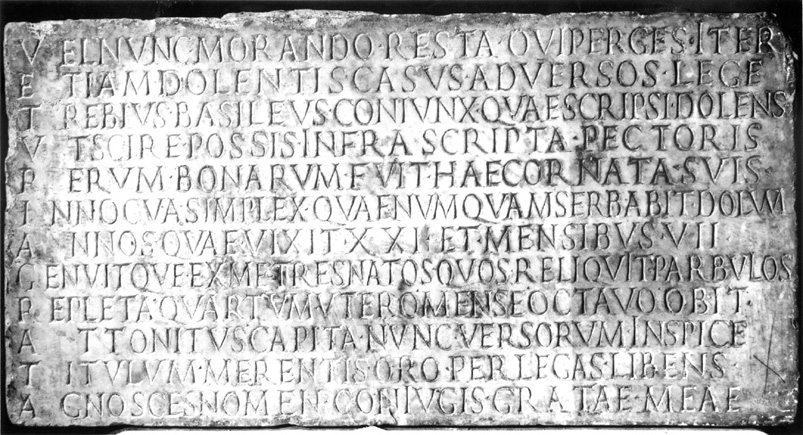 VEL NVNC MORANDO · RESTA · QVI PERGES · ITER
ETIAM DOLENTIS CASVS · ADVERSOS · LEGE
TREBIVS · BASILEVS · CONIVNX · QVAE SCRIPSI · DOLENS
VT SCIRE · POSSIS · INFRA SCRIPTA · PECTORIS
RERVM · BONARVM · FVIT · HAEC ORNATA · SVIS ·
INNOCVA · SIMPLEX · QVAE NVMQVAM SERBABIT DOLVM
ANNOS · QVAE VIXIT · XXI · ET · MENSIBVS · VII
GENVITQVE · EX ME · TRES NATOS QVOS RELIQVIT PARBVLOS
REPLETA · QVARTVM VTERO MENSE OCTAVO OBIT ·
ATTONITVS CAPITA · NVNC · VERSORVM INSPICE
TITVLVM · MERENTIS ORO · PERLEGAS · LIBENS ·
AGNOSCES NOMEN · CONIVGIS · GRATAE · MEAE